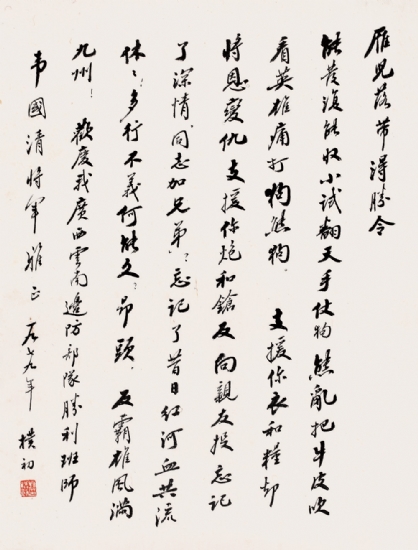 雁兒落帶得勝令
能發復能收小試翻天手仗狗熊亂把牛皮吹
看英雄痛打狗熊狗 支援你衣和糧却
將恩變仇支援你炮和鎗反向親友投忘記
了深情“同志加兄弟”忘記了昔日紅河血共流
休〻多行不義何能久〻昂頭 反霸雄風滿
九州！ 歡慶我廣西雲南邊防部隊勝利班師
韋國清將軍雅正 一九七九年 樸初